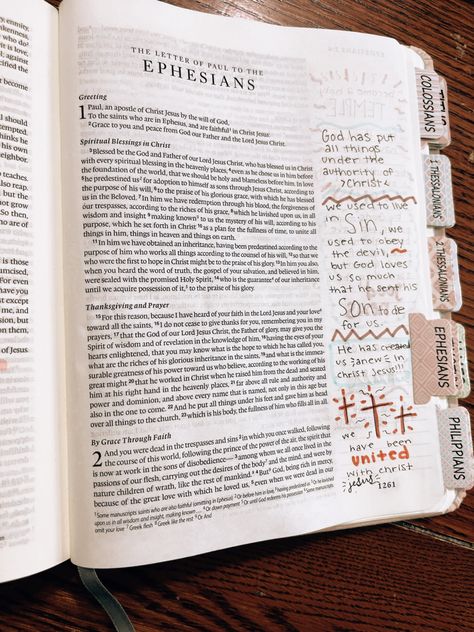 enmity,
who do
it is love,
against
become
I should
tempted.
thinks he
his own
neighbor.
teaches.
also reap.
but the
of doing
not grow
So then,
who are
of Jesus
THE LETTER OF PAUL TO THE
EPHESIANS
Greeting
1 Paul, an apostle of Christ Jesus by the will of God,
To the saints who are in Ephesus, and are faithful¹ in Christ Jesus:
²Grace to you and peace from God our Father and the Lord Jesus Christ.
Spiritual Blessings in Christ
³Blessed be the God and Father of our Lord Jesus Christ, who has blessed us in Christ
with every spiritual blessing in the heavenly places, ⁴even as he chose us in him before
the foundation of the world, that we should be holy and blameless before him. In love
⁵he predestined us² for adoption to himself as sons through Jesus Christ, according to
the purpose of his will, ⁶to the praise of his glorious grace, with which he has blessed
us in the Beloved. ⁷In him we have redemption through his blood, the forgiveness of
our trespasses, according to the riches of his grace, ⁸which he lavished upon us, in all
wisdom and insight ⁹making known³ to us the mystery of his will, according to his
purpose, which he set forth in Christ ¹⁰as a plan for the fullness of time, to unite all
things in him, things in heaven and things on earth.
¹¹In him we have obtained an inheritance, having been predestined according to the
purpose of him who works all things according to the counsel of his will, ¹²so that we
who were the first to hope in Christ might be to the praise of his glory. ¹³In him you also,
when you heard the word of truth, the gospel of your salvation, and believed in him,
were sealed with the promised Holy Spirit, ¹⁴who is the guarantee⁴ of our inheritance
until we acquire possession of it,⁵ to the praise of his glory.
Thanksgiving and Prayer
¹⁵For this reason, because I have heard of your faith in the Lord Jesus and your love⁶
toward all the saints, ¹⁶I do not cease to give thanks for you, remembering you in my
prayers, ¹⁷that the God of our Lord Jesus Christ, the Father of glory, may give you the
Spirit of wisdom and of revelation in the knowledge of him, ¹⁸having the eyes of your
hearts enlightened, that you may know what is the hope to which he has called you,
what are the riches of his glorious inheritance in the saints, ¹⁹and what is the immea-
surable greatness of his power toward us who believe, according to the working of his
great might ²⁰that he worked in Christ when he raised him from the dead and seated
him at his right hand in the heavenly places, ²¹far above all rule and authority and
power and dominion, and above every name that is named, not only in this age but
also in the one to come. ²²And he put all things under his feet and gave him as head
over all things to the church, ²³which is his body, the fullness of him who fills all in all.
By Grace Through Faith
2 And you were dead in the trespasses and sins ²in which you once walked, following
the course of this world, following the prince of the power of the air, the spirit that
is now at work in the sons of disobedience—³among whom we all once lived in the
passions of our flesh, carrying out the desires of the body⁷ and the mind, and were by
nature children of wrath, like the rest of mankind.⁸ ⁴But⁹ God, being rich in mercy,
because of the great love with which he loved us, ⁵even when we were dead in our
¹Some manuscripts saints who are also faithful (omitting in Ephesus) ²Or before him in love, ⁵having predestined us ³Or he lavished
upon us in all wisdom and insight, making known . . . ⁴Or down payment ⁵Or until God redeems his possession ⁶Some manuscripts
omit your love ⁷Greek flesh ⁸Greek like the rest ⁹Or And
TEMPLE
God has put
all things
under the
authority of
Christ
we used to live
in Sin, we
used to obey
the devil,
but God loves
us so much
that he sent his
Son to die
for us.
He has created
us anew in
Christ Jesus!!!
we
have been
united
with christ
jesus
1261
COLOSSIANS
1 THESSALONIANS
2 THESSALONIANS
EPHESIANS
PHILIPPIANS